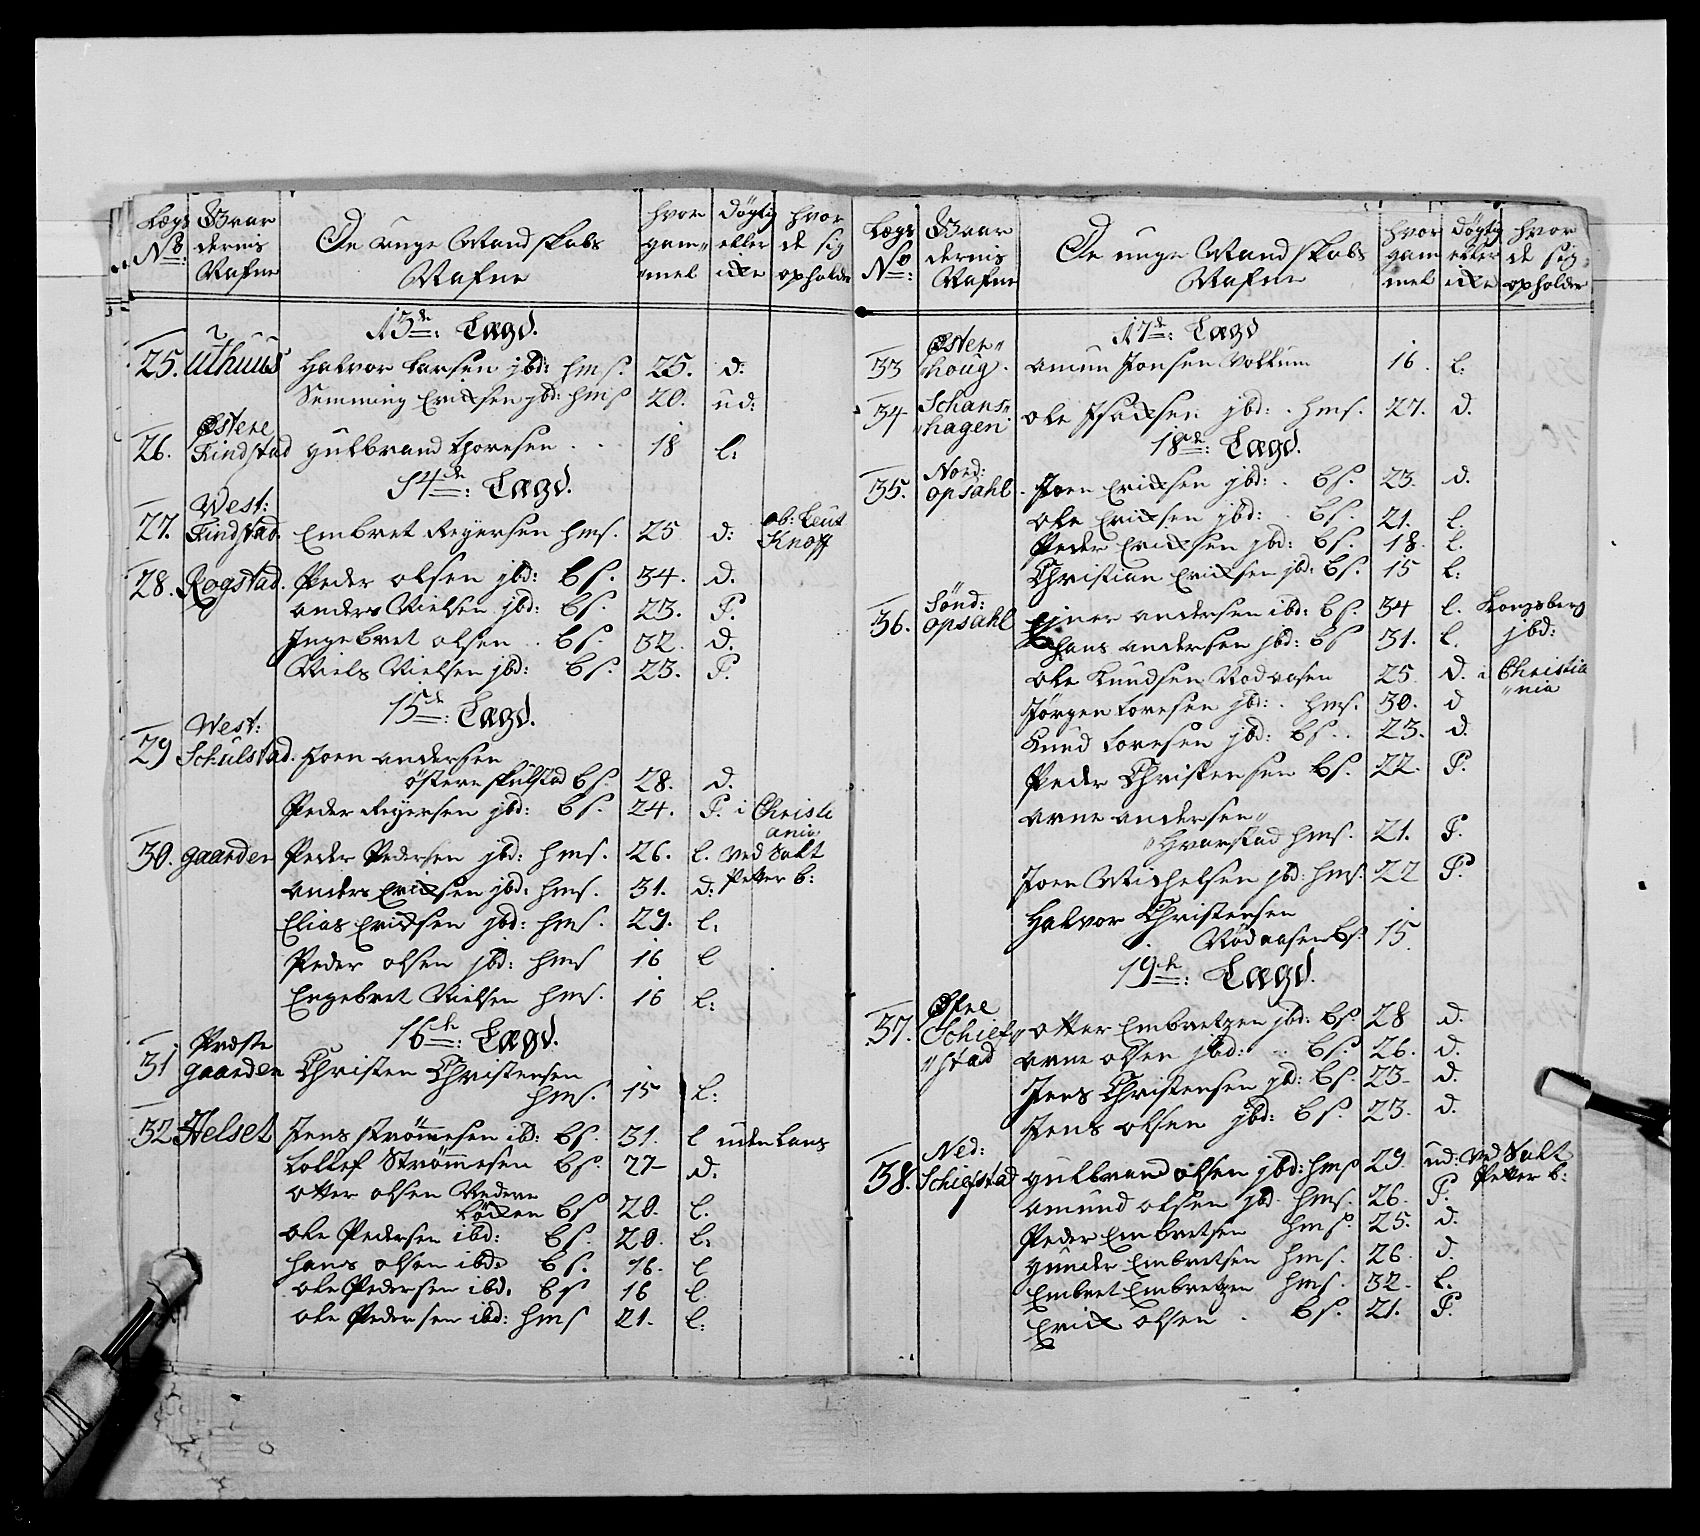 Lægs Gaar De unge Mandskabs hvor dögtig hvor
No: dernis Nafne gam- eller de sig
Nafne mel icke opholder
13de: Lægd.
25. Uthuus Halvor Larsen jbd: hms. 25. d:
Semming Ericksen jbd: hms 20. ud:
26. Østere Findstad Gulbrand Thoresen 18 l:
14de: Lægd.
27. West: Findstad. Embret Reyersen hms. 25 d: ob: Leut Knoff
28. Rogstad. Peder Olsen jbd: bs. 34. d.
Anders Nielsen jbd: bs. 23. P.
Ingebret Olsen bs. 32. d.
Niels Nielsen jbd: bs. 23. P.
15de: Lægd.
29 West: Schulstad. Joen Andersen
östere skulstad bs. 28. d.
Peder Reyersen jbd: bs. 24. P. i Christi
ania
30. gaarden Peder Pedersen jbd: hms. 26. l. ved Salt
Anders Ericksen jbd: hms. 31. d: Petter b:
Elias Ericksen jbd: hms. 29. l.
Peder Olsen jbd: hms 16 l
Engebret Nielsen hms. 16 l:
16de: Lægd.
31 Præste gaarden Christen Christensen
hms. 15 l:
32 Helset Jens Strömmesen ib: bs. 31. l uden Lans
Lollef Strömmesen bs. 27 d.
Otter Olsen Nedere
Löcken bs 20. l.
Ole Pedersen ibd: bs. 20. l:
Hans Olsen ibd: bs. 16. l
Ole Pedersen ibd. bs 16 l
Ole Pedersen ibd: hms 21. l:
Lægs Gaar De unge Mandskabs hvor dögtig hvor
No: dernis Nafne gam eller de sig
Nafne mel icke opholder
17de: Lægd
33 Øster- houg. Amun Jonsen Vollum 16. l.
34 Schans- hagen Ole Isacksen jbd: hms. 27. d.
18de: Lægd.
35. Nord: opsahl Joen Ericksen jbd: bs. 23. d.
Ole Ericksen jbd: bs. 21. l.
Peder Ericksen jbd: bs. 18. l.
Christian Ericksen jbd: bs. 15 l:
36. Sönd: opsahl Ejner Andersen ibd: bs. 34 l. Kongsberg
Hans Andersen jbd: bs 31. l. jbd:
Ole Knudsen Rodaasen 25 d. i Christia
nia
Jörgen Toresen jbd: hms. 30. d
Knud Toresen jbd: bs. 23. d.
Peder Christensen bs. 22. P.
Arne Andersen
Hvarstad hms. 21. P.
Joen Michelsen jbd: hms. 22 P.
Halvor Christensen
Rödaasen bs. 15.
19de: Lægd.
37. Øfre Schief- stad Otter Embretzen jbd: bs. 28 d.
Arne Olsen jbd: bs. 26. d.
Jens Christensen jbd: bs. 23 d.
Jens Olsen jbd: bs. 23. d.
38. Ned: Schiefstad Gulbrand Olsen jbd: hms 29. ud: ved Salt
Petter b:
Amund Olsen jbd hms. 26. P.
Peder Embretsen hms. 25. d.
Gunder Embretsen hms. 26 d.
Embret Embretzen hms. 32. l.
Erick Olsen bs. 21. P.